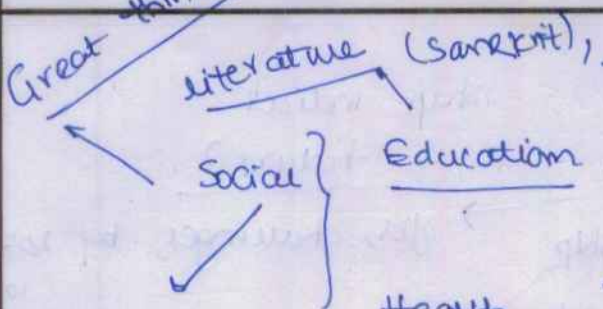 Great
literature (Sanskrit),
Social } Education